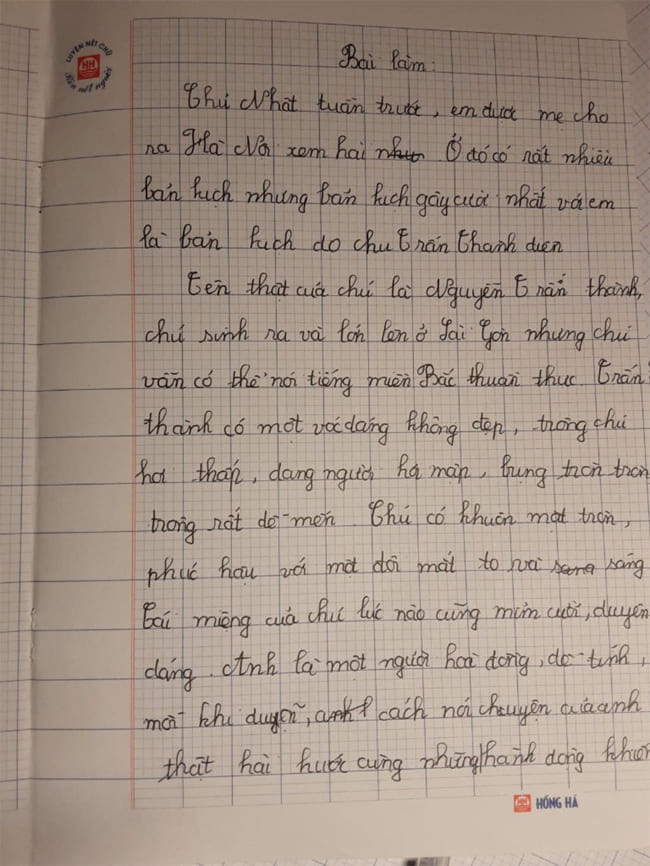 LUYỆN NÉT CHỮ
HH
Rèn nết người
Bài làm:
Chủ Nhật tuần trước, em được mẹ cho
ra Hà Nội xem hài như Ở đó có rất nhiều
bản kịch nhưng bản kịch gây cười nhất vá em
là bản kịch do chu Trấn Thanh diên
Tên thật của chú là Nguyễn Trấn thành,
chú sinh ra và lớn lên ở Sài Gòn nhưng chú
vẫn có thể nói tiếng miền Bắc thuần thục. Trấn
thành có một vóc dáng không đẹp, trông chú
hơi thấp, dang người há mập, bụng tròn tròn
trong rất dê mến Chú có khuôn mặt tròn,
phúc hậu với một đôi mắt to và sang sáng
Cái miệng của chú lúc nào cũng mỉm cười, duyên
dáng. Anh là một người hoà đong, dê tính,
môi khi duyễn, anh cách nói chuyện của anh
thật hài hước cùng những hành dọng khuôn
HH HỒNG HÀ